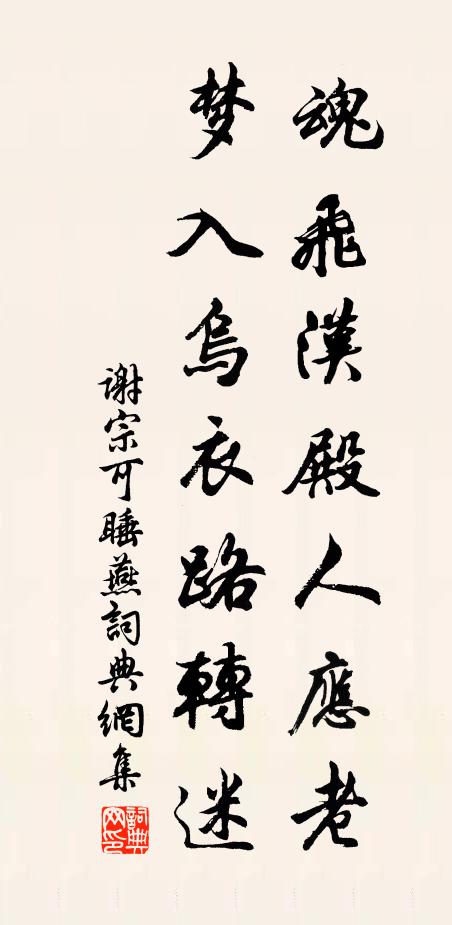 魂飛漢殿人應老
梦入烏衣路轉迷
谢宗可睡燕詞典網集
詞典网印